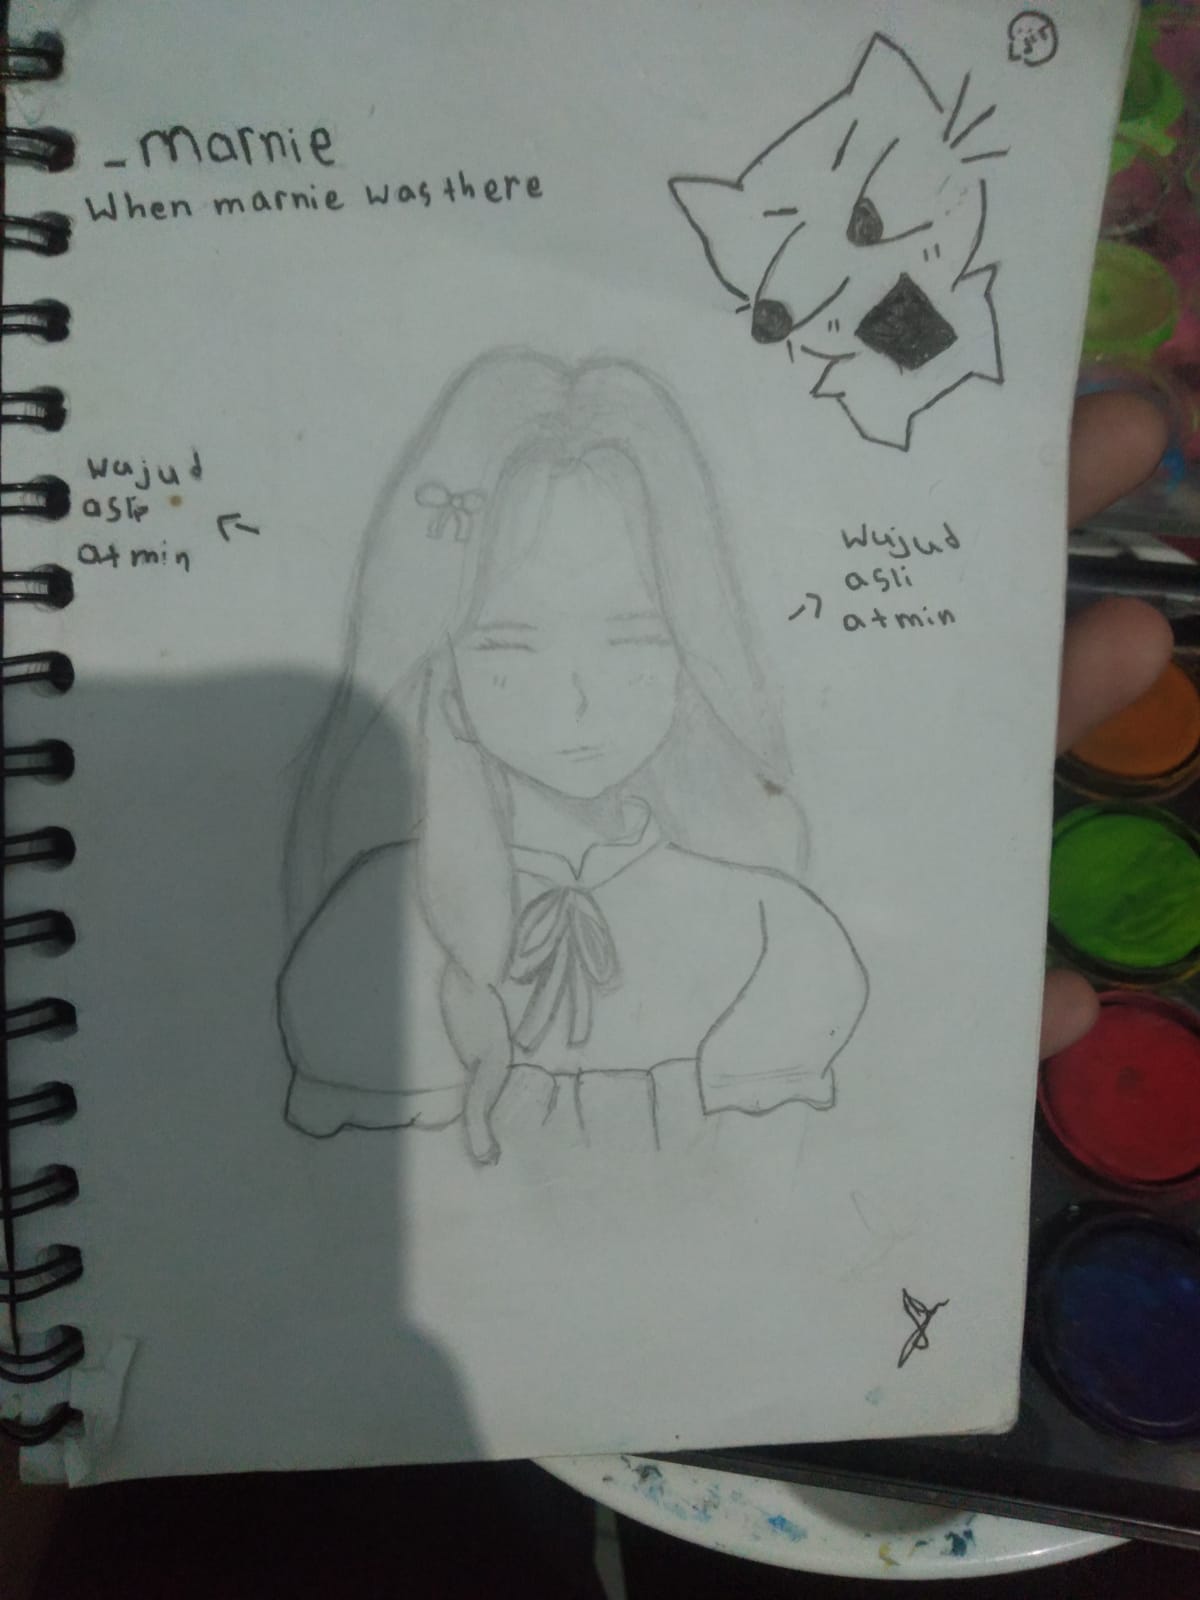 _marnie
When marnie was there
wujud
asli
atmin
wujud
asli
atmin